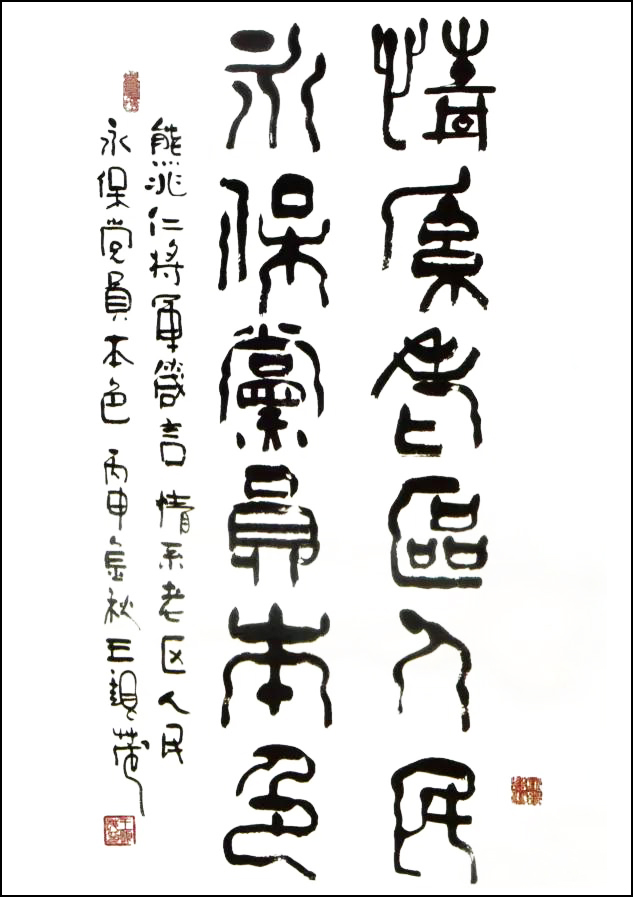 情系老區人民
永保黨員本色
熊兆仁将軍箴言 情系老区人民
永保党員本色 丙申金秋王